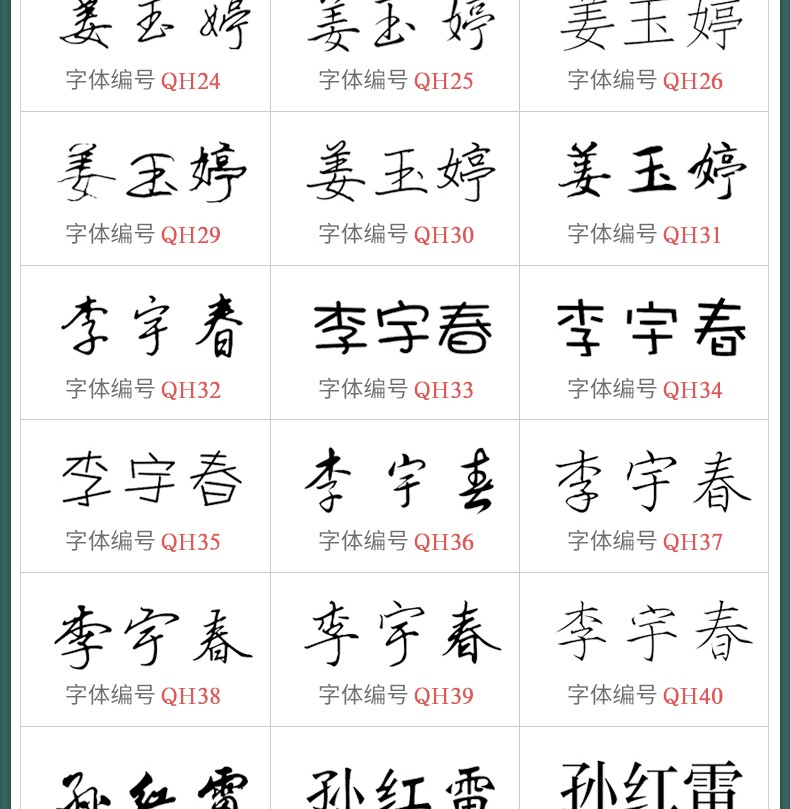 姜玉婷 姜玉婷 姜玉婷
字体编号 QH24 字体编号 QH25 字体编号 QH26
姜玉婷 姜玉婷 姜玉婷
字体编号 QH29 字体编号 QH30 字体编号 QH31
李宇春 李宇春 李宇春
字体编号 QH32 字体编号 QH33 字体编号 QH34
李宇春 李宇春 李宇春
字体编号 QH35 字体编号 QH36 字体编号 QH37
李宇春 李宇春 李宇春
字体编号 QH38 字体编号 QH39 字体编号 QH40
孙红雷 孙红雷 孙红雷